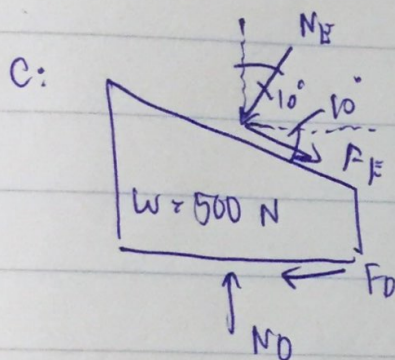 N_E
C:
10°
10°
F_E
W = 500 N
F_D
N_D